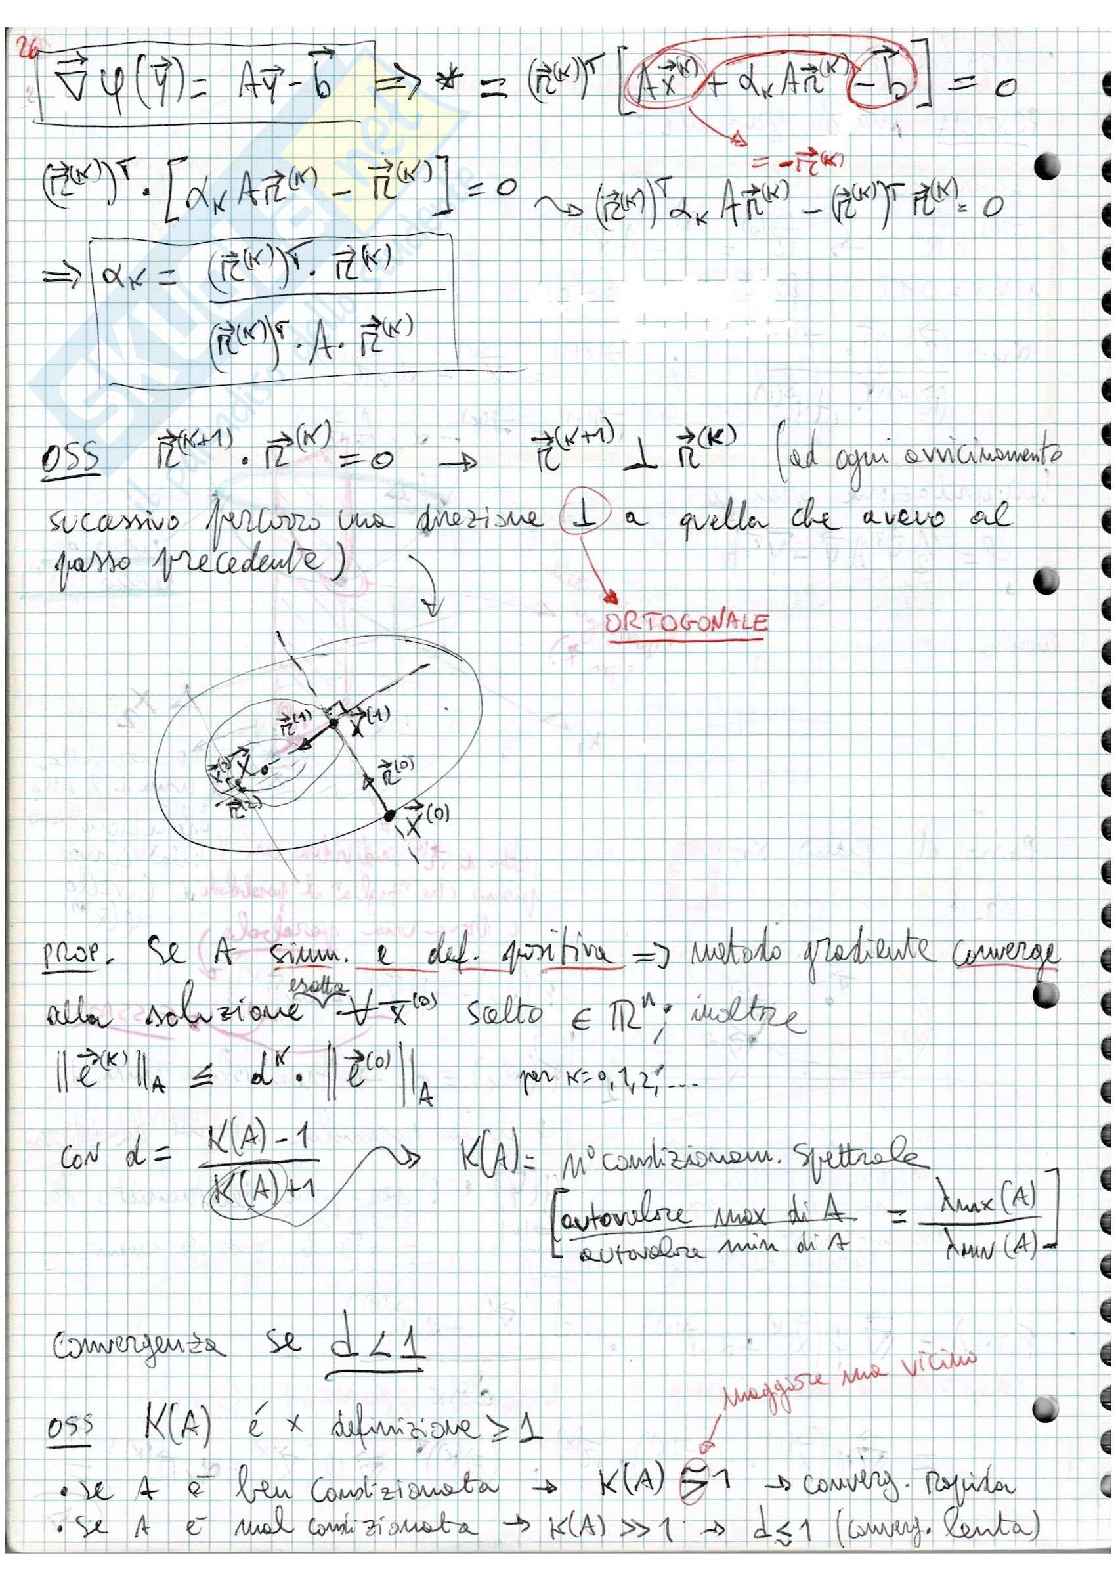 26
∇⃗φ(y⃗) = Ay⃗ - b⃗ => * = (r⃗⁽ᴷ⁾)ᵀ [Ax⃗⁽ᴷ⁾ + αₖ Ar⃗⁽ᴷ⁾ - b⃗] = 0
= -r⃗⁽ᴷ⁾
(r⃗⁽ᴷ⁾)ᵀ · [αₖ Ar⃗⁽ᴷ⁾ - r⃗⁽ᴷ⁾] = 0 ⤳ (r⃗⁽ᴷ⁾)ᵀ αₖ Ar⃗⁽ᴷ⁾ - (r⃗⁽ᴷ⁾)ᵀ r⃗⁽ᴷ⁾ = 0
=> αₖ = (r⃗⁽ᴷ⁾)ᵀ · r⃗⁽ᴷ⁾
(r⃗⁽ᴷ⁾)ᵀ · A · r⃗⁽ᴷ⁾
OSS r⃗⁽ᴷ⁺¹⁾ · r⃗⁽ᴷ⁾ = 0 → r⃗⁽ᴷ⁺¹⁾ ⊥ r⃗⁽ᴷ⁾ (ad ogni avvicinamento
successivo percorro una direzione ⊥ a quella che avevo al
passo precedente)
ORTOGONALE
r⃗⁽¹⁾ x⃗⁽¹⁾
x⃗⁽²⁾ x⃗ r⃗⁽⁰⁾
r⃗⁽²⁾ x⃗⁽⁰⁾
PROP. Se A simm. e def. positiva => metodo gradiente converge
esatta
alla soluzione ∀ x⃗⁽⁰⁾ scelto ∈ ℝⁿ; inoltre
||e⃗⁽ᴷ⁾||_A ≤ dᴷ · ||e⃗⁽⁰⁾||_A per K=0,1,2,...
con d = K(A)-1 ⤳ K(A) = n° condizionam. spettrale
K(A)+1
[autovalore max di A = λmax(A)
autovalore min di A λmin(A)]
Convergenza se d < 1
Maggiore ma vicino
OSS K(A) é x definizione ≥ 1
• se A è ben condizionata → K(A) ≳ 1 → converg. rapida
• se A è mal condizionata → K(A) >> 1 → d ≲ 1 (converg. lenta)
SKUOLA.net